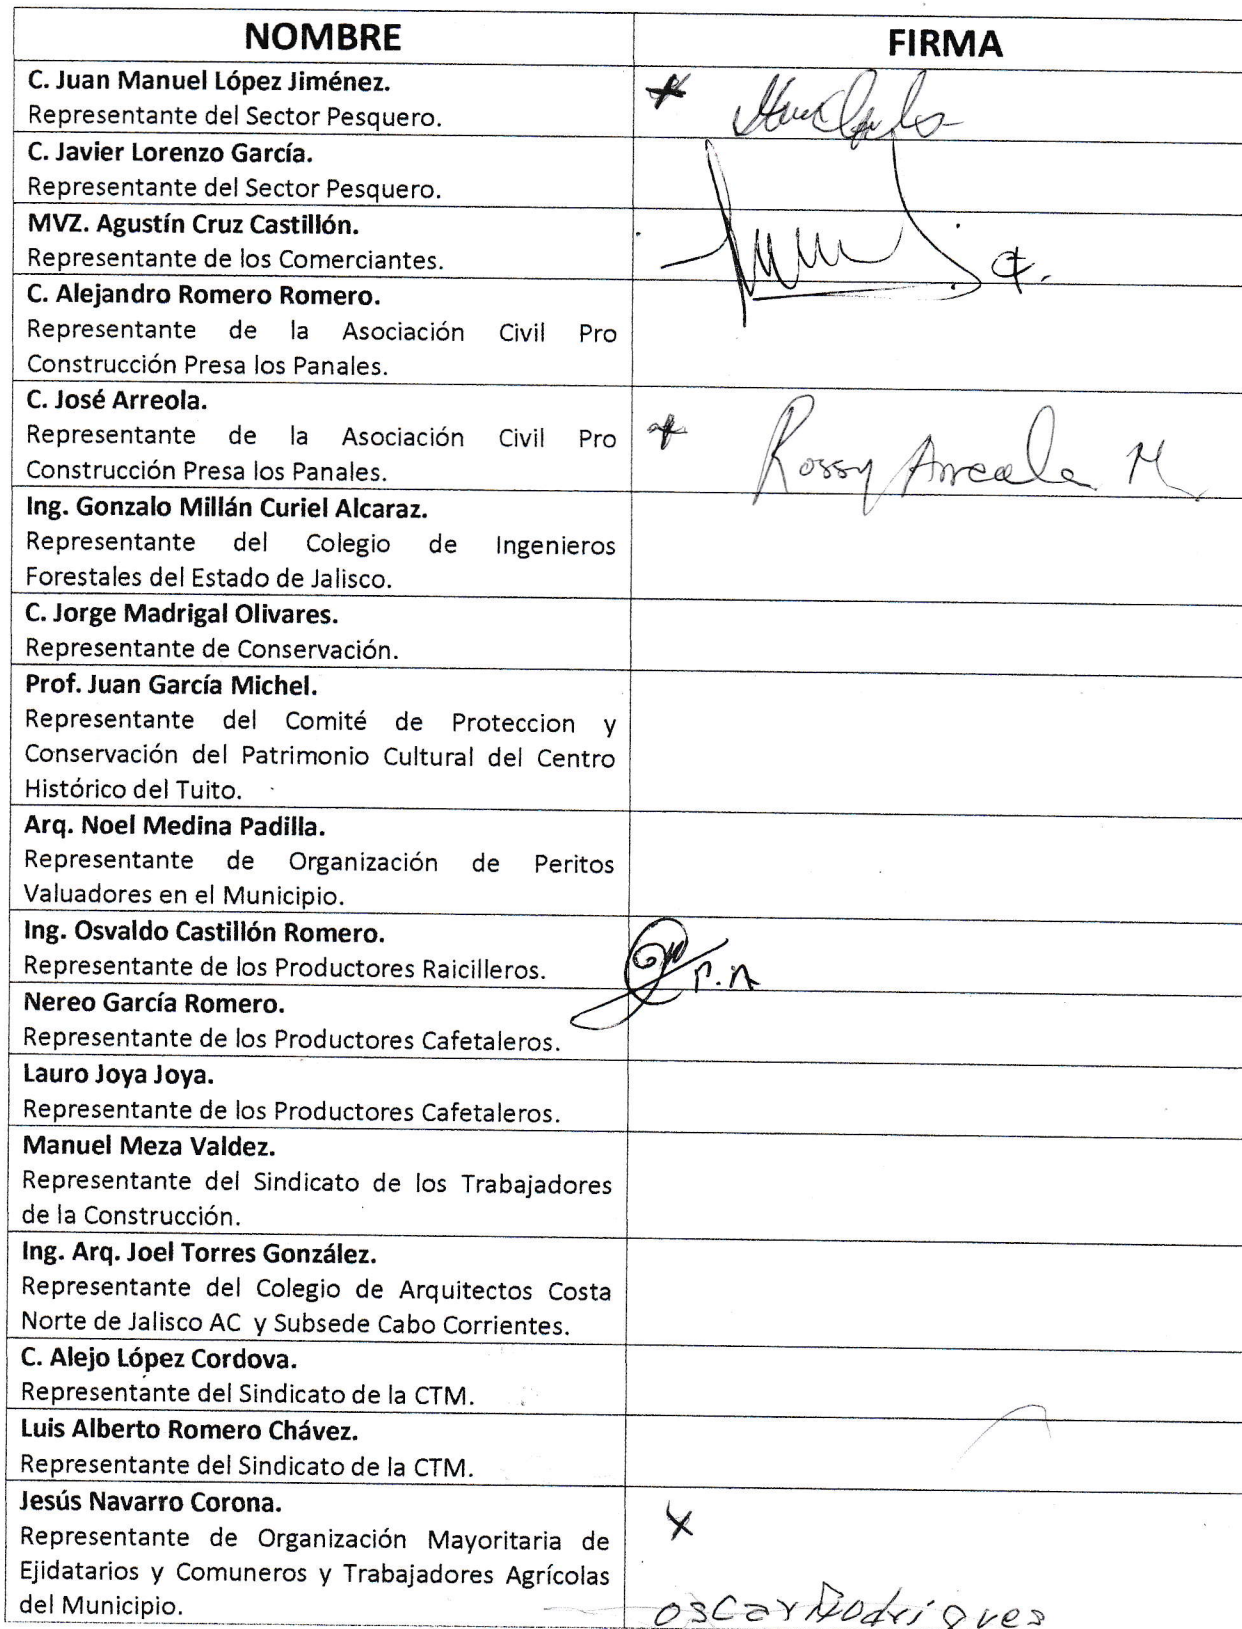 NOMBRE
FIRMA
C. Juan Manuel López Jiménez.
Representante del Sector Pesquero.
C. Javier Lorenzo García.
Representante del Sector Pesquero.
MVZ. Agustín Cruz Castillón.
Representante de los Comerciantes.
C. Alejandro Romero Romero.
Representante de la Asociación Civil Pro
Construcción Presa los Panales.
C. José Arreola.
Representante de la Asociación Civil Pro
Construcción Presa los Panales.
Rossy Arreola M
Ing. Gonzalo Millán Curiel Alcaraz.
Representante del Colegio de Ingenieros
Forestales del Estado de Jalisco.
C. Jorge Madrigal Olivares.
Representante de Conservación.
Prof. Juan García Michel.
Representante del Comité de Proteccion y
Conservación del Patrimonio Cultural del Centro
Histórico del Tuito.
Arq. Noel Medina Padilla.
Representante de Organización de Peritos
Valuadores en el Municipio.
Ing. Osvaldo Castillón Romero.
Representante de los Productores Raicilleros.
Nereo García Romero.
Representante de los Productores Cafetaleros.
Lauro Joya Joya.
Representante de los Productores Cafetaleros.
Manuel Meza Valdez.
Representante del Sindicato de los Trabajadores
de la Construcción.
Ing. Arq. Joel Torres González.
Representante del Colegio de Arquitectos Costa
Norte de Jalisco AC y Subsede Cabo Corrientes.
C. Alejo López Cordova.
Representante del Sindicato de la CTM.
Luis Alberto Romero Chávez.
Representante del Sindicato de la CTM.
Jesús Navarro Corona.
Representante de Organización Mayoritaria de
Ejidatarios y Comuneros y Trabajadores Agrícolas
del Municipio.
x
oscar Rodrigues